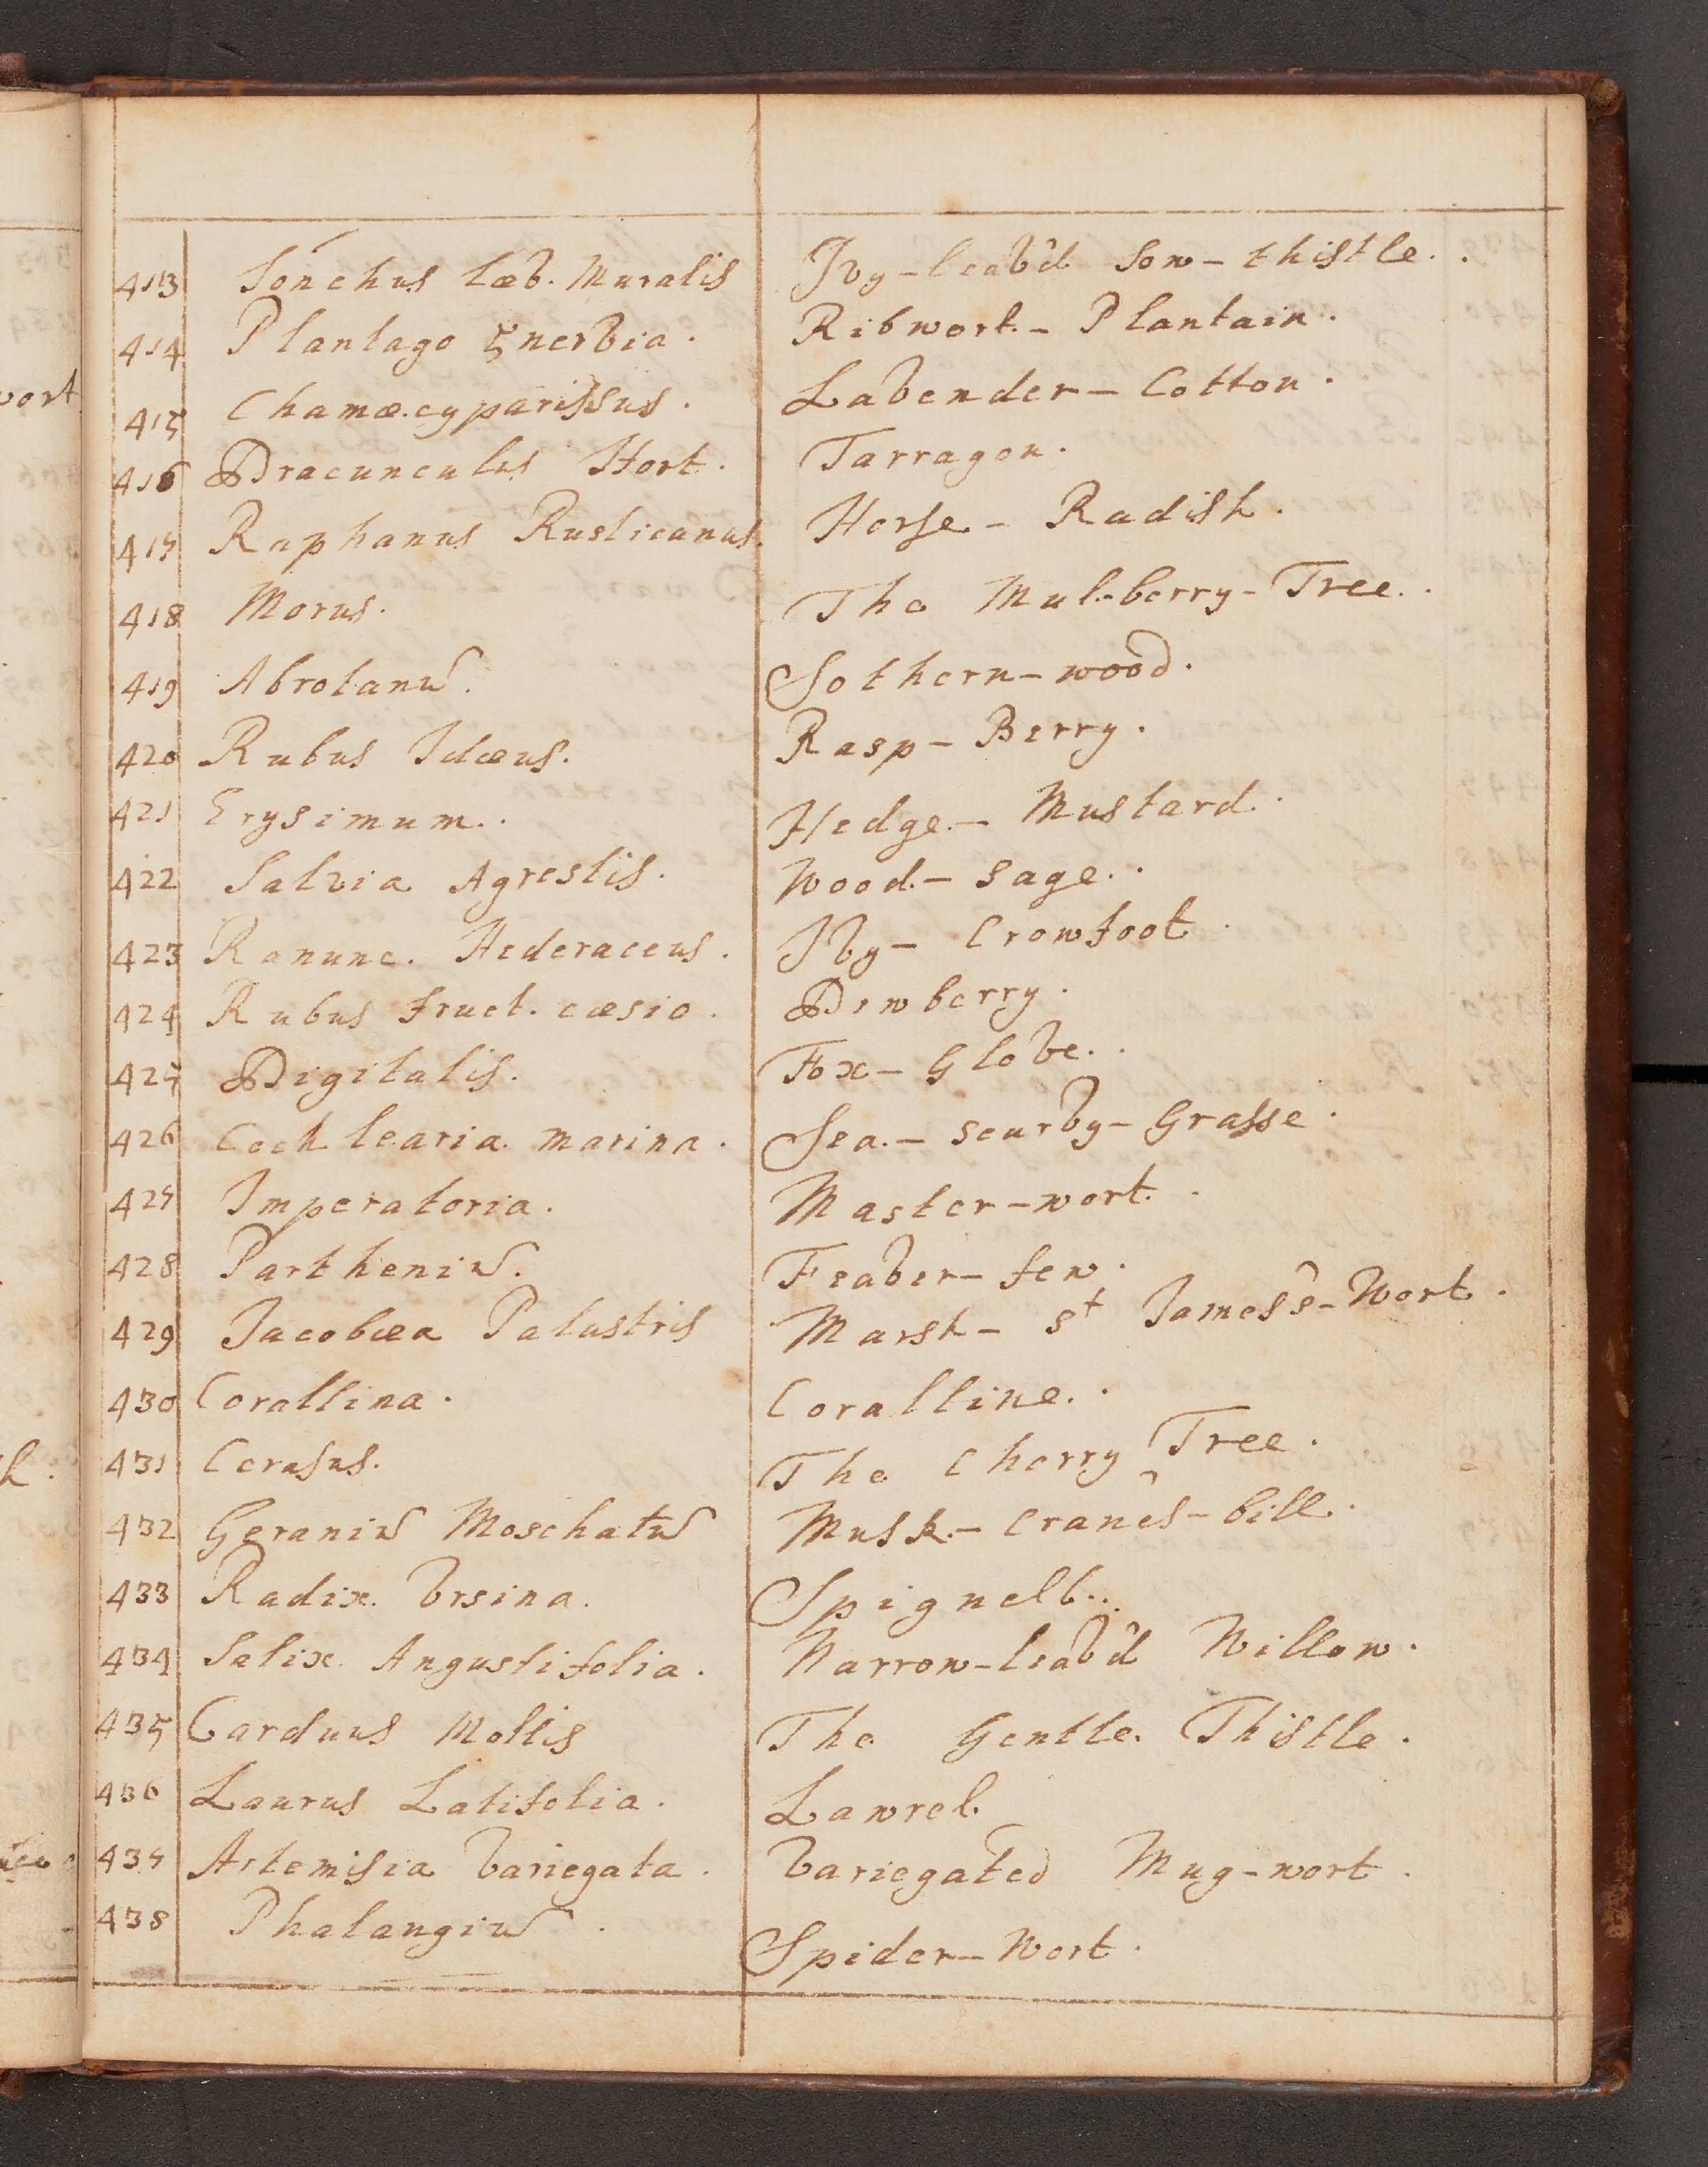 413 Sonchus Læv. Muralis Ivy-leav'd Sow-thistle.
414 Plantago 5nervia. Ribwort-Plantain.
415 Chamæcyparissus. Lavender-Cotton.
416 Dracunculus Hort. Tarragon.
417 Raphanus Rusticanus. Horse-Radish.
418 Morus. The Mulberry-Tree.
419 Abrotanū. Sothern-wood.
420 Rubus Idæus. Rasp-Berry.
421 Erysimum. Hedge-Mustard.
422 Salvia Agrestis. Wood-Sage.
423 Ranunc. Hederaceus. Ivy-Crowfoot.
424 Rubus fruct. cæsio. Dewberry.
425 Digitalis. Fox-Glove.
426 Cochlearia marina. Sea-Scurvy-Grasse.
427 Imperatoria. Master-wort.
428 Partheniū. Feaver-few.
429 Jacobæa Palustris Marsh-St James's-Wort.
430 Corallina. Coralline.
431 Cerasus. The Cherry Tree.
432 Geraniū Moschatū Musk-Crane's-bill.
433 Radix Vrsina. Spignell.
434 Salix Angustifolia. Narrow-leav'd Willow.
435 Carduus Mollis The Gentle Thistle.
436 Laurus Latifolia. Lawrel.
437 Artemisia Variegata. Variegated Mug-wort.
438 Phalangiū. Spider-Wort.